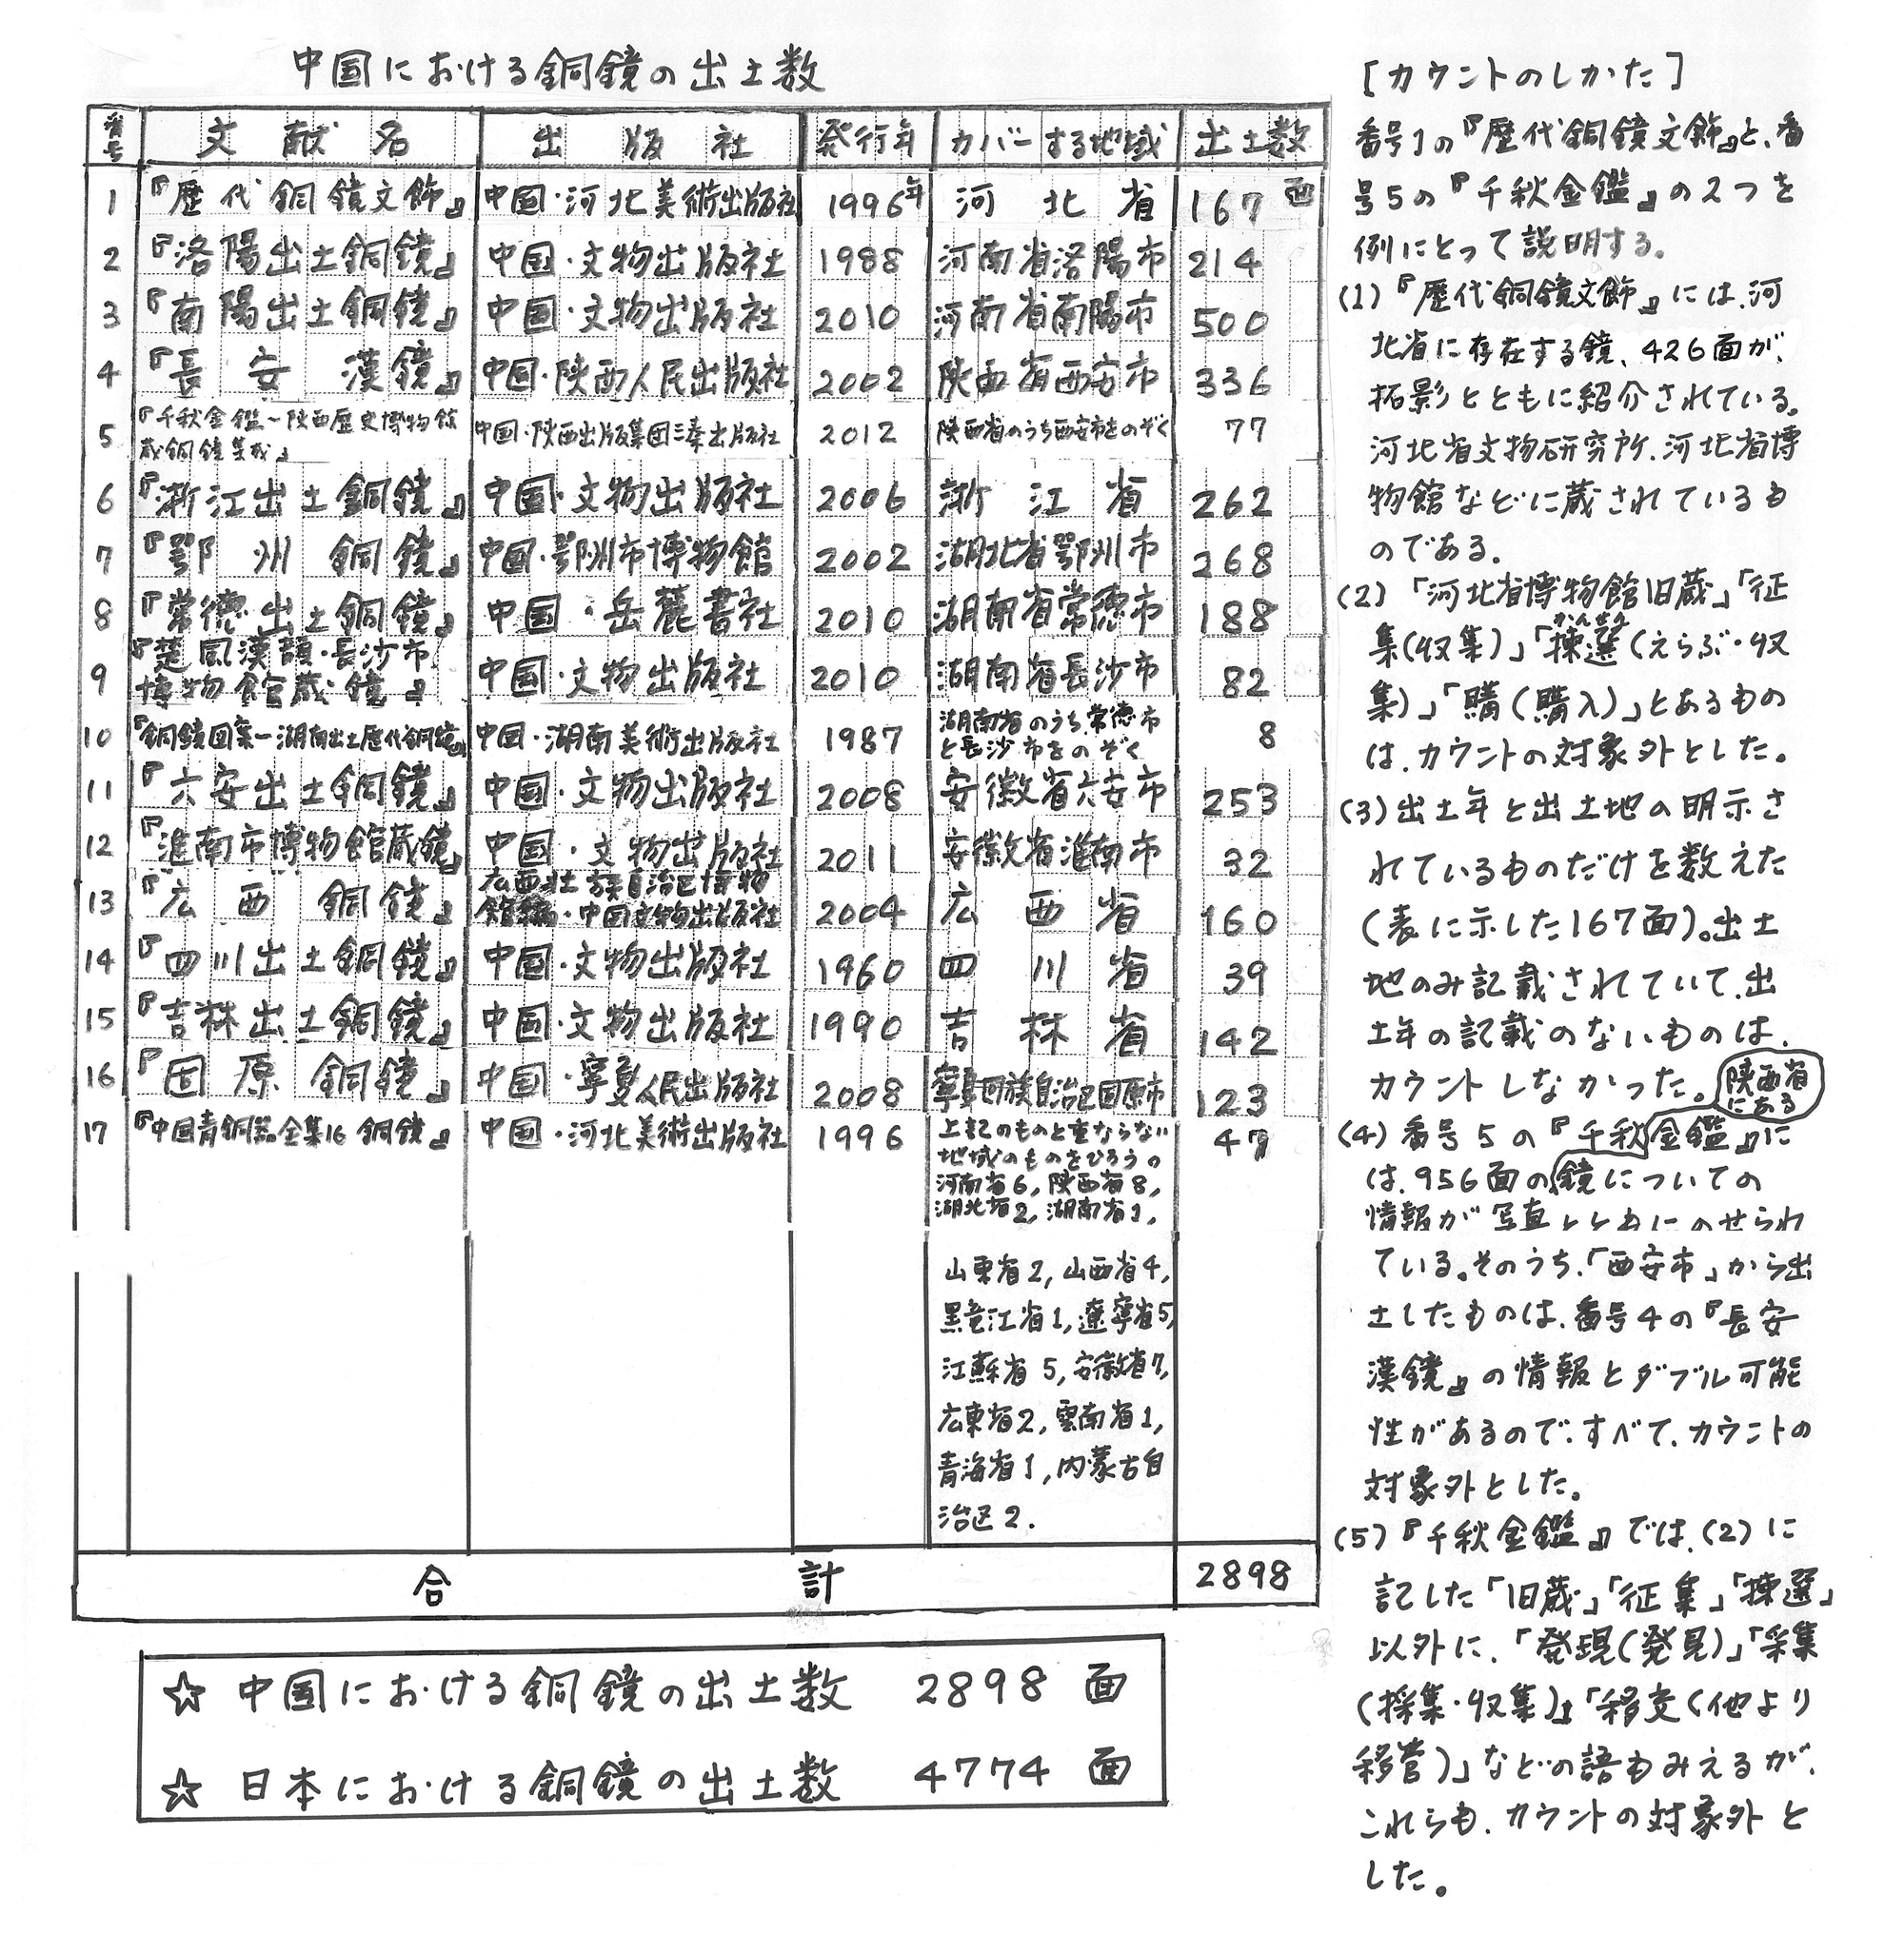 中国における銅鏡の出土数
番号 文献名 出版社 発行年 カバーする地域 出土数
1 『歴代銅鏡文飾』 中国・河北美術出版社 1996年 河北省 167面
2 『洛陽出土銅鏡』 中国・文物出版社 1988 河南省洛陽市 214
3 『南陽出土銅鏡』 中国・文物出版社 2010 河南省南陽市 500
4 『長安漢鏡』 中国・陝西人民出版社 2002 陝西省西安市 336
5 『千秋金鑑－陝西歴史博物館蔵銅鏡集成』 中国・陝西出版集団三秦出版社 2012 陝西省のうち西安市をのぞく 77
6 『浙江出土銅鏡』 中国・文物出版社 2006 浙江省 262
7 『鄂州銅鏡』 中国・鄂州市博物館 2002 湖北省鄂州市 268
8 『常徳出土銅鏡』 中国・岳麓書社 2010 湖南省常徳市 188
9 『楚風漢韻・長沙市博物館蔵鏡』 中国・文物出版社 2010 湖南省長沙市 82
10 『銅鏡図案－湖南出土歴代銅鏡』 中国・湖南美術出版社 1987 湖南省のうち常徳市と長沙市をのぞく 8
11 『六安出土銅鏡』 中国・文物出版社 2008 安徽省六安市 253
12 『淮南市博物館蔵鏡』 中国・文物出版社 2011 安徽省淮南市 32
13 『広西銅鏡』 広西壮族自治区博物館編・中国文物出版社 2004 広西省 160
14 『四川出土銅鏡』 中国・文物出版社 1960 四川省 39
15 『吉林出土銅鏡』 中国・文物出版社 1990 吉林省 142
16 『固原銅鏡』 中国・寧夏人民出版社 2008 寧夏回族自治区固原市 123
17 『中国青銅器全集16 銅鏡』 中国・河北美術出版社 1996 上記のものと重ならない 47
地域のものをひろう。
河南省6, 陝西省8,
湖北省2, 湖南省1,
山東省2, 山西省4,
黒竜江省1, 遼寧省5,
江蘇省5, 安徽省7,
広東省2, 雲南省1,
青海省1, 内蒙古自
治区2.
合計 2898
☆ 中国における銅鏡の出土数 2898 面
☆ 日本における銅鏡の出土数 4774 面
[カウントのしかた]
番号1の『歴代銅鏡文飾』と、番
号5の『千秋金鑑』の2つを
例にとって説明する。
(1)『歴代銅鏡文飾』には、河
北省に存在する鏡、426面が、
拓影とともに紹介されている。
河北省文物研究所、河北省博
物館などに蔵されているも
のである。
(2)「河北省博物館旧蔵」「征
集(収集)」「揀選(えらぶ・収
かんせん
集)」「購(購入)」とあるもの
は、カウントの対象外とした。
(3)出土年と出土地の明示さ
れているものだけを数えた
(表に示した167面)。出土
地のみ記載されていて、出
土年の記載のないものは、
カウントしなかった。
陝西省にある
(4)番号5の『千秋金鑑』に
は、956面の鏡についての
情報が写真とともにのせられ
ている。そのうち、「西安市」から出
土したものは、番号4の『長安
漢鏡』の情報とダブル可能
性があるので、すべて、カウントの
対象外とした。
(5)『千秋金鑑』では、(2)に
記した「旧蔵」「征集」「揀選」
以外に、「発現(発見)」「采集
(採集・収集)」「移交(他より
移管)」などの語もみえるが、
これらも、カウントの対象外と
した。